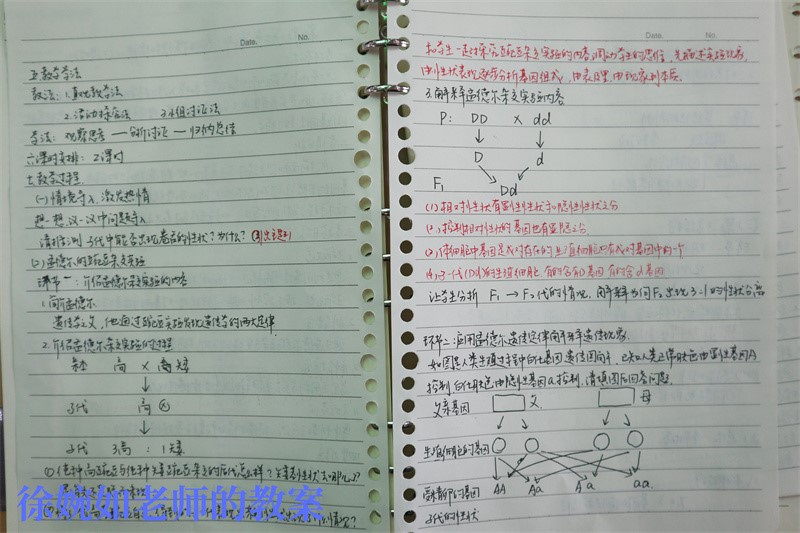 Date.
No.
五教学方法
教法：1.直观教学法
2.活动探究法 3.小组讨论法
学法：观察思考—分析讨论—归纳总结
六课时安排：2课时
七教学过程
(一)情境导入，激发热情
想一想，议一议中问题导入
请推测子代中能否出现卷舌的性状？为什么？
(二)孟德尔的豌豆杂交实验
环节一：介绍孟德尔杂交实验的内容
1.简介孟德尔
遗传学之父，他通过豌豆实验发现遗传学的两大定律
2.介绍孟德尔杂交实验的过程
亲代 高 × 矮
子代 高
子代 3高：1矮
徐婉如老师的教案
Date.
No.
和学生一起探究豌豆杂交实验的内容，调动学生的思维，先描述实验现象，
由性状表现逐步分析基因组成，由表及里，由现象到本质。
3.解释孟德尔杂交实验内容
P： DD × dd
D d
F₁ Dd
(1)相对性状有显性性状和隐性性状之分
(2)控制相对性状的基因也有显隐之分
(3)体细胞中基因是成对存在的，生殖细胞只有成对基因中的一个
(4)子一代(Dd)的生殖细胞有的含有D基因，有的含d基因
让学生分析 F₁→F₂代的情况，解释为何F₂出现3-1的性状分离
环节二：应用孟德尔遗传定律解释遗传现象
如图是人类生殖过程中的基因遗传图解，已知人类正常肤色由显性基因A
控制，白化肤色由隐性基因a控制，请填图后回答问题。
父亲基因 父 母
生殖细胞的基因
受精卵的基因 AA Aa Aa aa
子代的性状